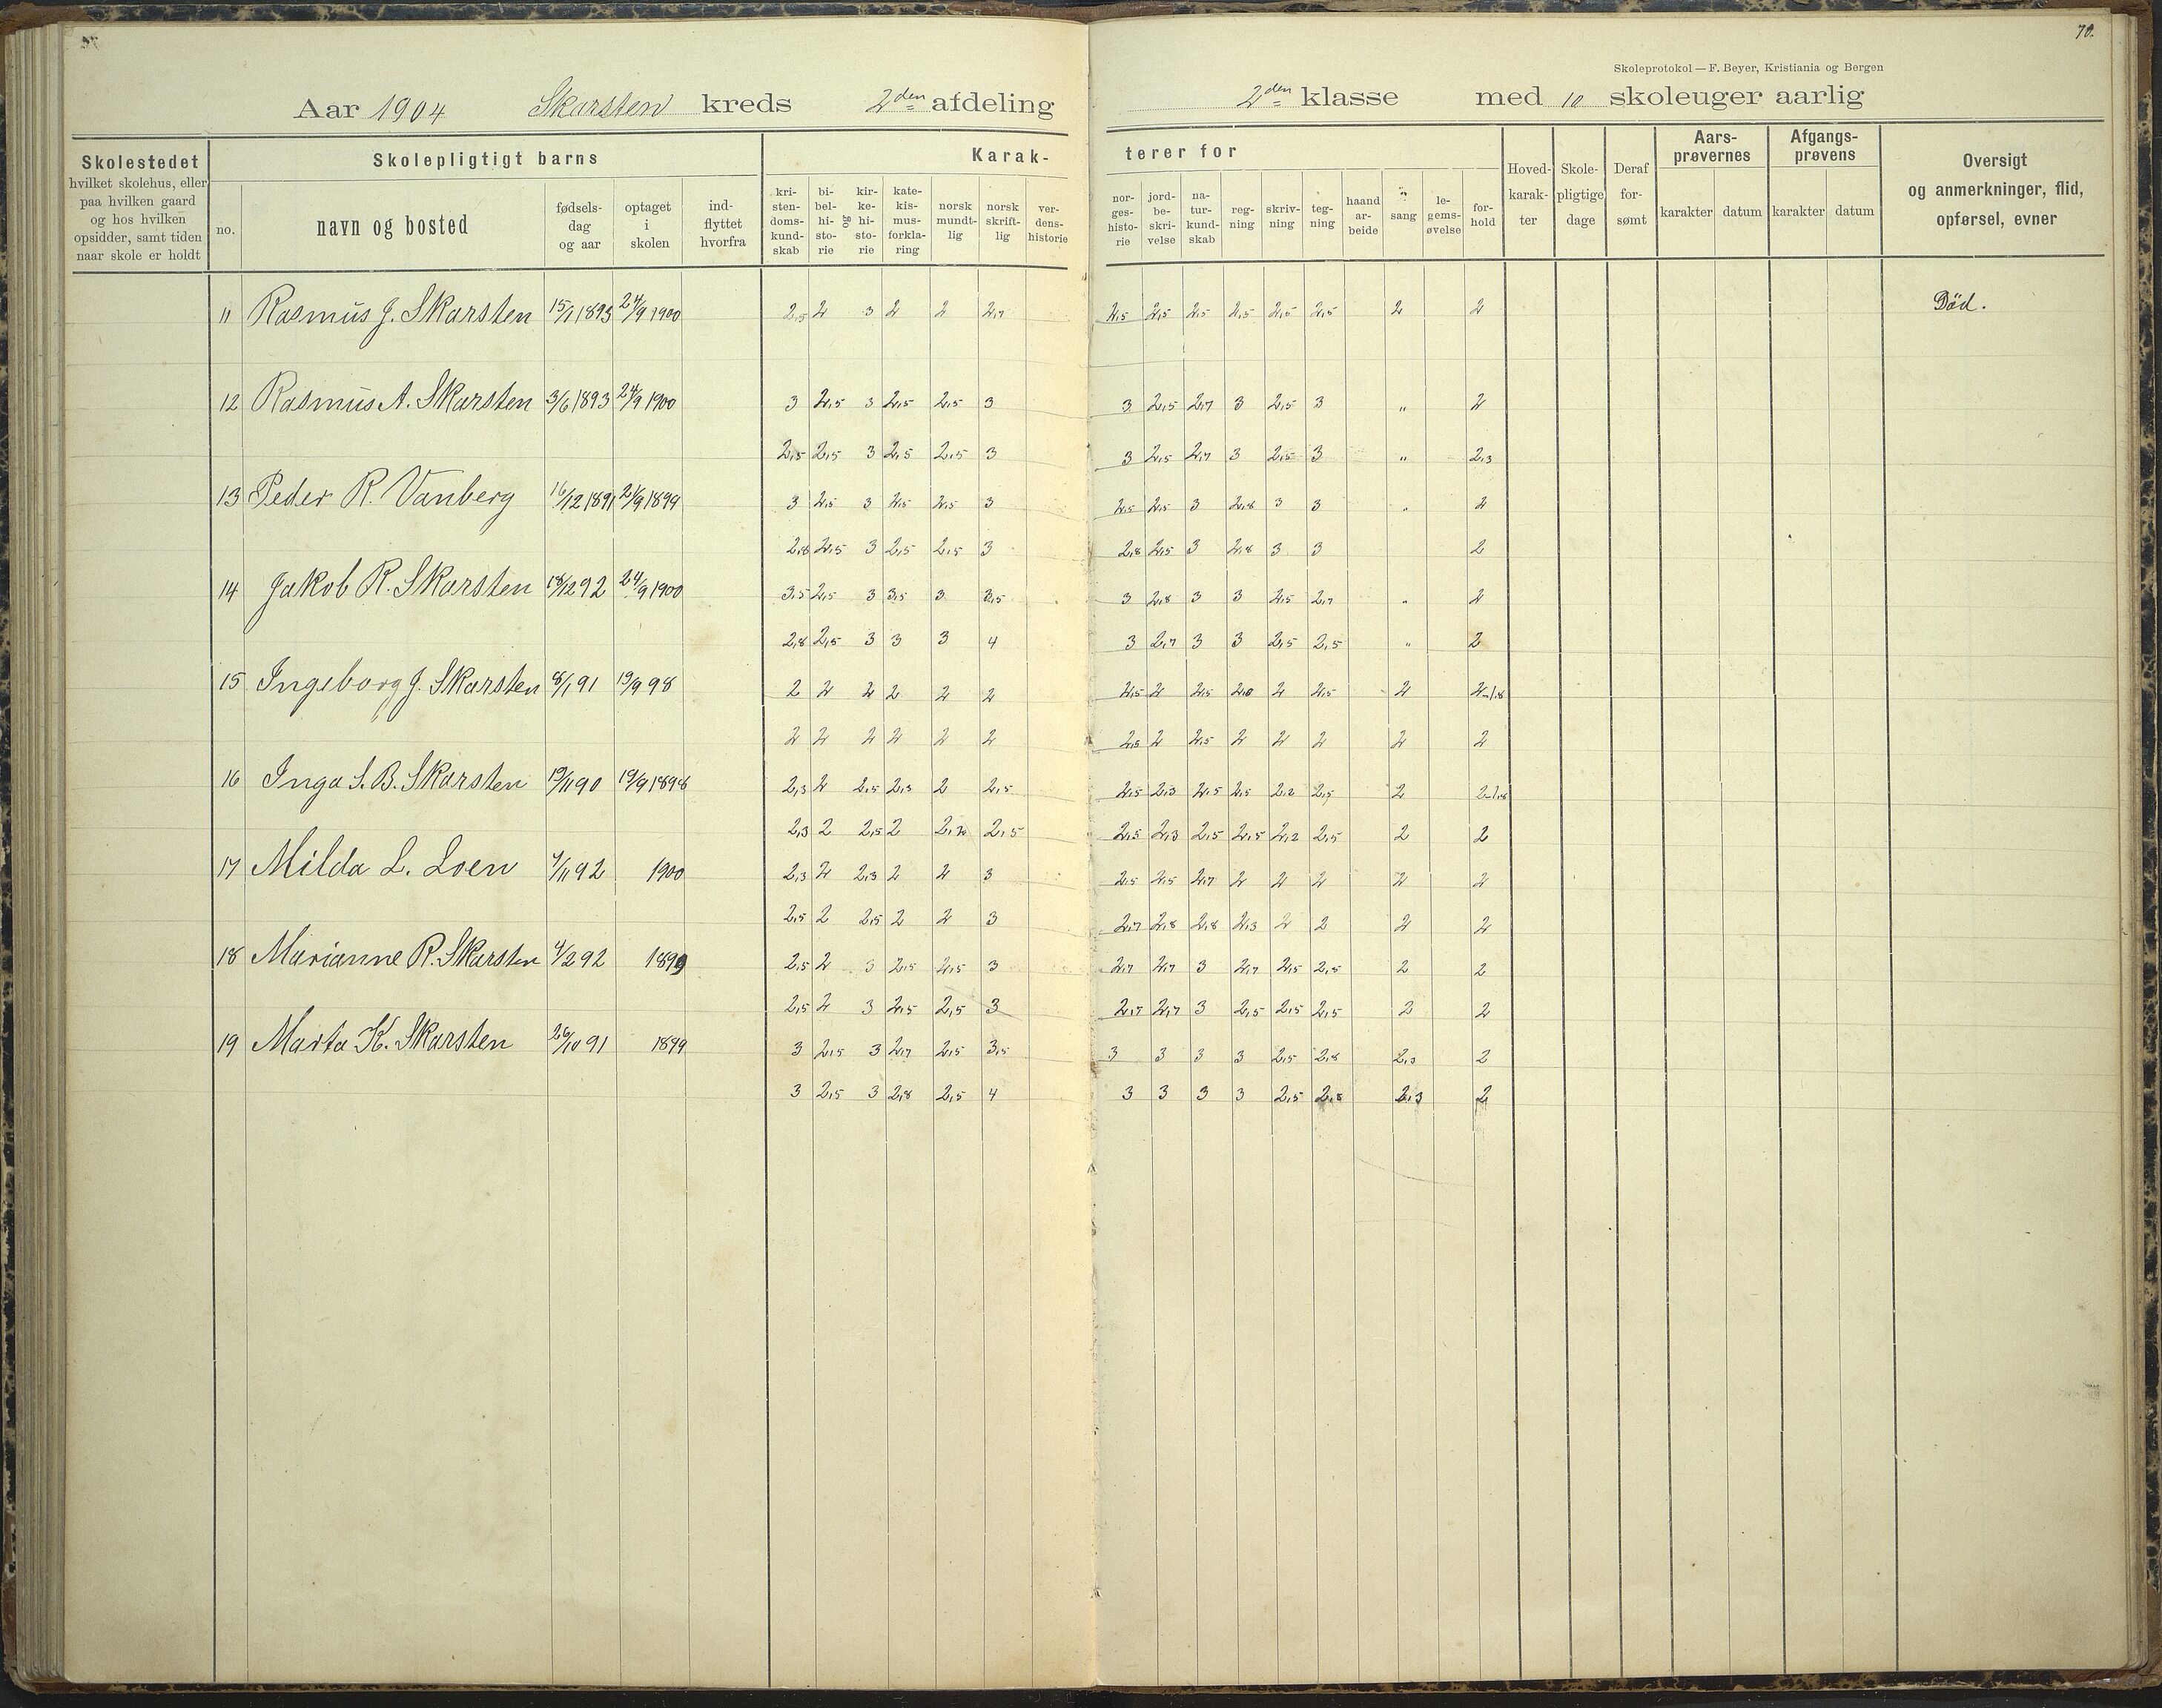 70.
Skoleprotokol — F. Beyer, Kristiania og Bergen
Aar 1904 Skarsten kreds 2den afdeling 2den klasse med 10 skoleuger aarlig
Skolestedet hvilket skolehus, eller paa hvilken gaard og hos hvilken opsidder, samt tiden naar skole er holdt
Skolepligtigt barns
no. navn og bosted fødselsdag og aar optaget i skolen indflyttet hvorfra
Karakterer for
kristendomskundskab bibelhistorie og kirkehistorie katekismusforklaring norsk mundtlig norsk skriftlig verdenshistorie
norgeshistorie jordbeskrivelse naturkundskab regning skrivning tegning haandarbeide sang legemsøvelse forhold
Hovedkarakter Skolepligtige dage Deraf forsømt
Aarsprøvernes karakter datum
Afgangsprøvens karakter datum
Oversigt og anmerkninger, flid, opførsel, evner
11 Rasmus J. Skarsten 15/1 1893 24/9 1900 2,5 2 3 2 2 2,7 2,5 2,5 2,5 2,5 2,5 2,5 2 2 Død.
12 Rasmus A. Skarsten 3/6 1893 24/9 1900 3 2,5 3 2,5 2,5 3 3 2,5 2,7 3 2,5 3 " 2
2,5 2,5 3 2,5 2,5 3 3 2,5 2,7 3 2,5 3 " 2,3
13 Peder R. Vanberg 16/12 1891 21/9 1899 3 2,5 3 2,5 2,5 3 2,5 2,5 3 2,8 3 3 " 2
2,8 2,5 3 2,5 2,5 3 2,8 2,5 3 2,8 3 3 2
14 Jakob R. Skarsten 18/12 92 24/9 1900 3,5 2,5 3 3,5 3 3,5 3 2,8 3 3 2,5 2,7 " 2
2,8 2,5 3 3 3 4 3 2,7 3 3 2,5 2,5 " 2
15 Ingeborg J. Skarsten 8/1 91 19/9 98 2 2 2 2 2 2 2,5 2 2,5 2,0 2 2,5 2 2-1,8
2 2 2 2 2 2 2,5 2 2,5 2 2 2 2 2
16 Inga S. B. Skarsten 19/11 90 19/9 1898 2,3 2 2,5 2,3 2 2,5 2,5 2,3 2,5 2,5 2,2 2,5 2 2-1,8
2,3 2 2,5 2 2,5 2,5 2,3 2,5 2,5 2,2 2,5 2 2
17 Milda L. Loen 7/11 92 1900 2,3 2 2,3 2 2 3 2,5 2,5 2,7 2 2 2 2 2
2,5 2 2,5 2 2 3 2,7 2,8 2,8 2,3 2 2 2 2
18 Marianne R. Skarsten 4/2 92 1899 2,5 2 3 2,5 2,5 3 2,7 2,7 3 2,7 2,5 2,5 2 2
2,5 2 3 2,5 2,5 3 2,7 2,7 3 2,5 2,5 2,5 2 2
19 Marta K. Skarsten 26/10 91 1899 3 2,5 3 2,7 2,5 3,5 3 3 3 3 2,5 2,8 2,3 2
3 2,5 3 2,8 2,5 4 3 3 3 3 2,5 2,8 2,3 2